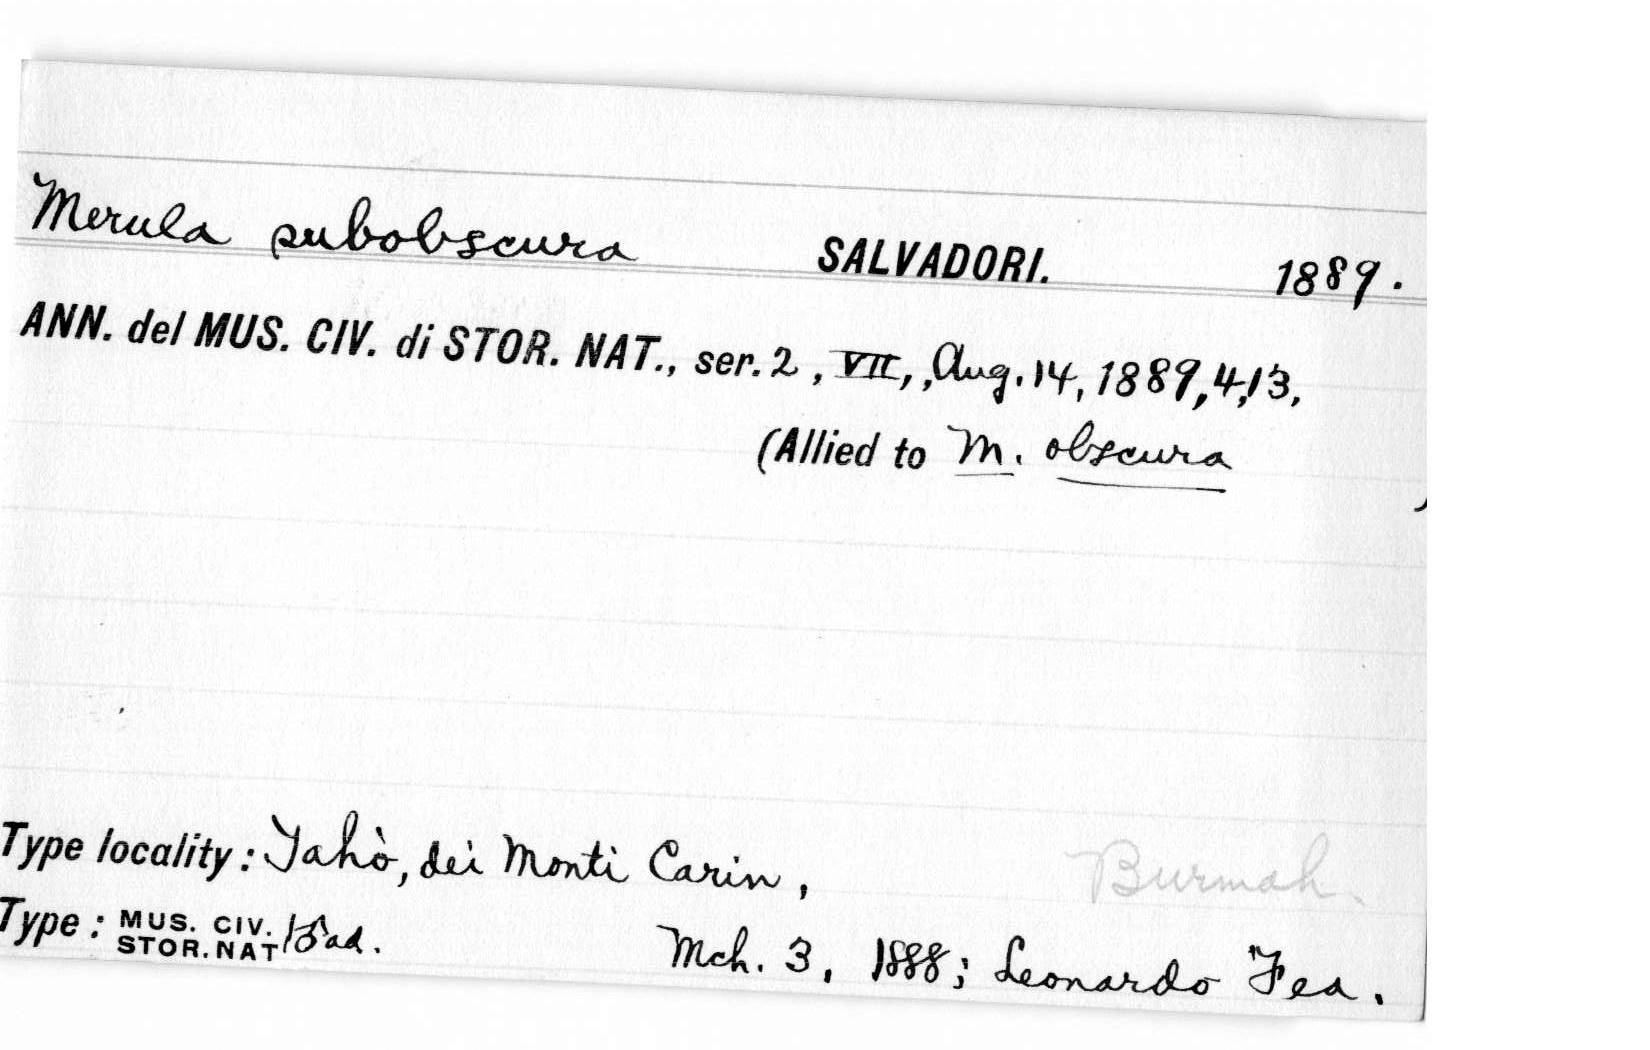 Merula subobscura SALVADORI. 1889.
ANN. del MUS. CIV. di STOR. NAT., ser. 2, VII, Aug. 14, 1889, 413,
(Allied to M. obscura )
Type locality: Tahò, dei Monti Carin, Burmah.
Type: MUS. CIV. STOR. NAT ad. Mch. 3, 1888; Leonardo Fea.